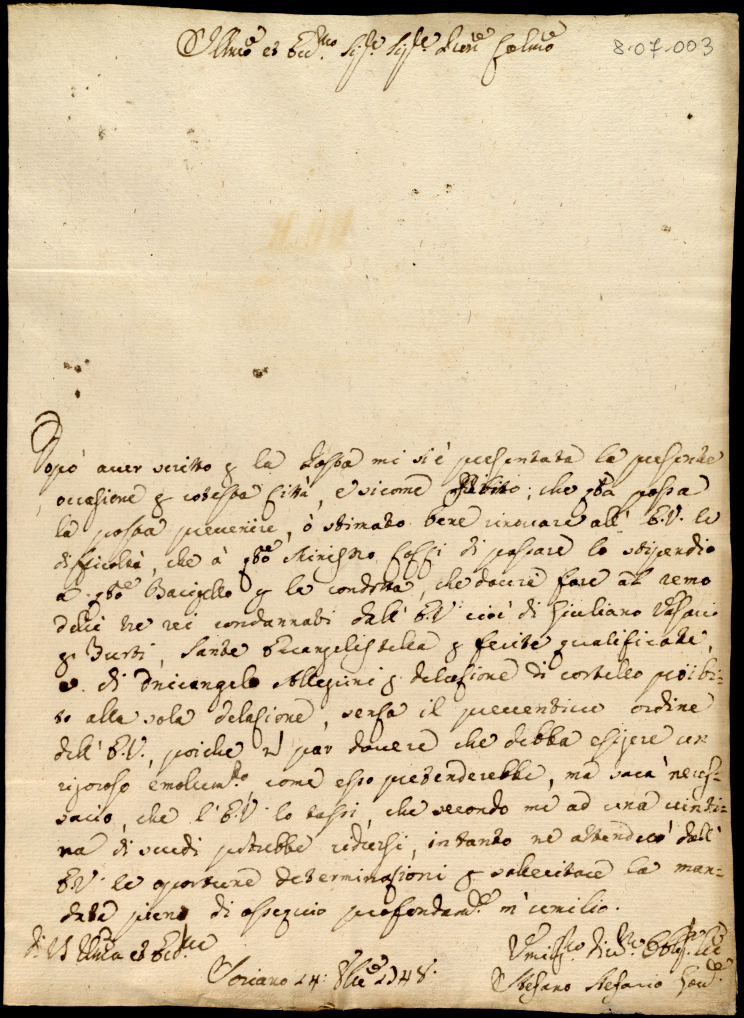 8-07-003
Dopò aver scritto p la Posta mi si è presentata la presente
occasione p cotesta Città, e sicome dubito, che qta possa
la posta prevenire, ò stimato bene rinovare all' E.V. le
difficoltà, che à qto Ministro di passare lo stipendio
a qto Bargello p la condotta, che dovrà fare al remo
delli tre rei condannati dall' E.V. cioè di Giuliano
p Furti, Sante Evangelistella p ferite qualificate,
e di Onicangelo Allegrini p delazione di cortello proibi-
to alla sola delazione, senza il preventivo ordine
dell' E.V., poiche nī par dovere che debba esigere un
rigoroso emolumto, come esso pretenderebbe, ma sarà neces-
sario, che l' E.V. lo tassi, che secondo me ad una venti-
na di scudi potrebbe ridursi, intanto ne attenderò dall'
E.V. le oportune determinazioni p sollecitare la man-
data pieno di ossequio profondamte m' umilio.
di V. Illma et Ecc
Soriano 24: 8bre 1748.
Stefano Stefano